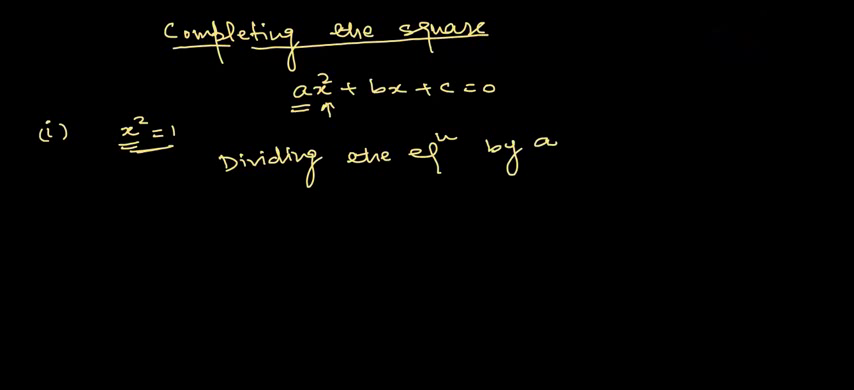 Completing the square
ax² + bx + c = 0
(i) x² = 1
Dividing the eqⁿ by a